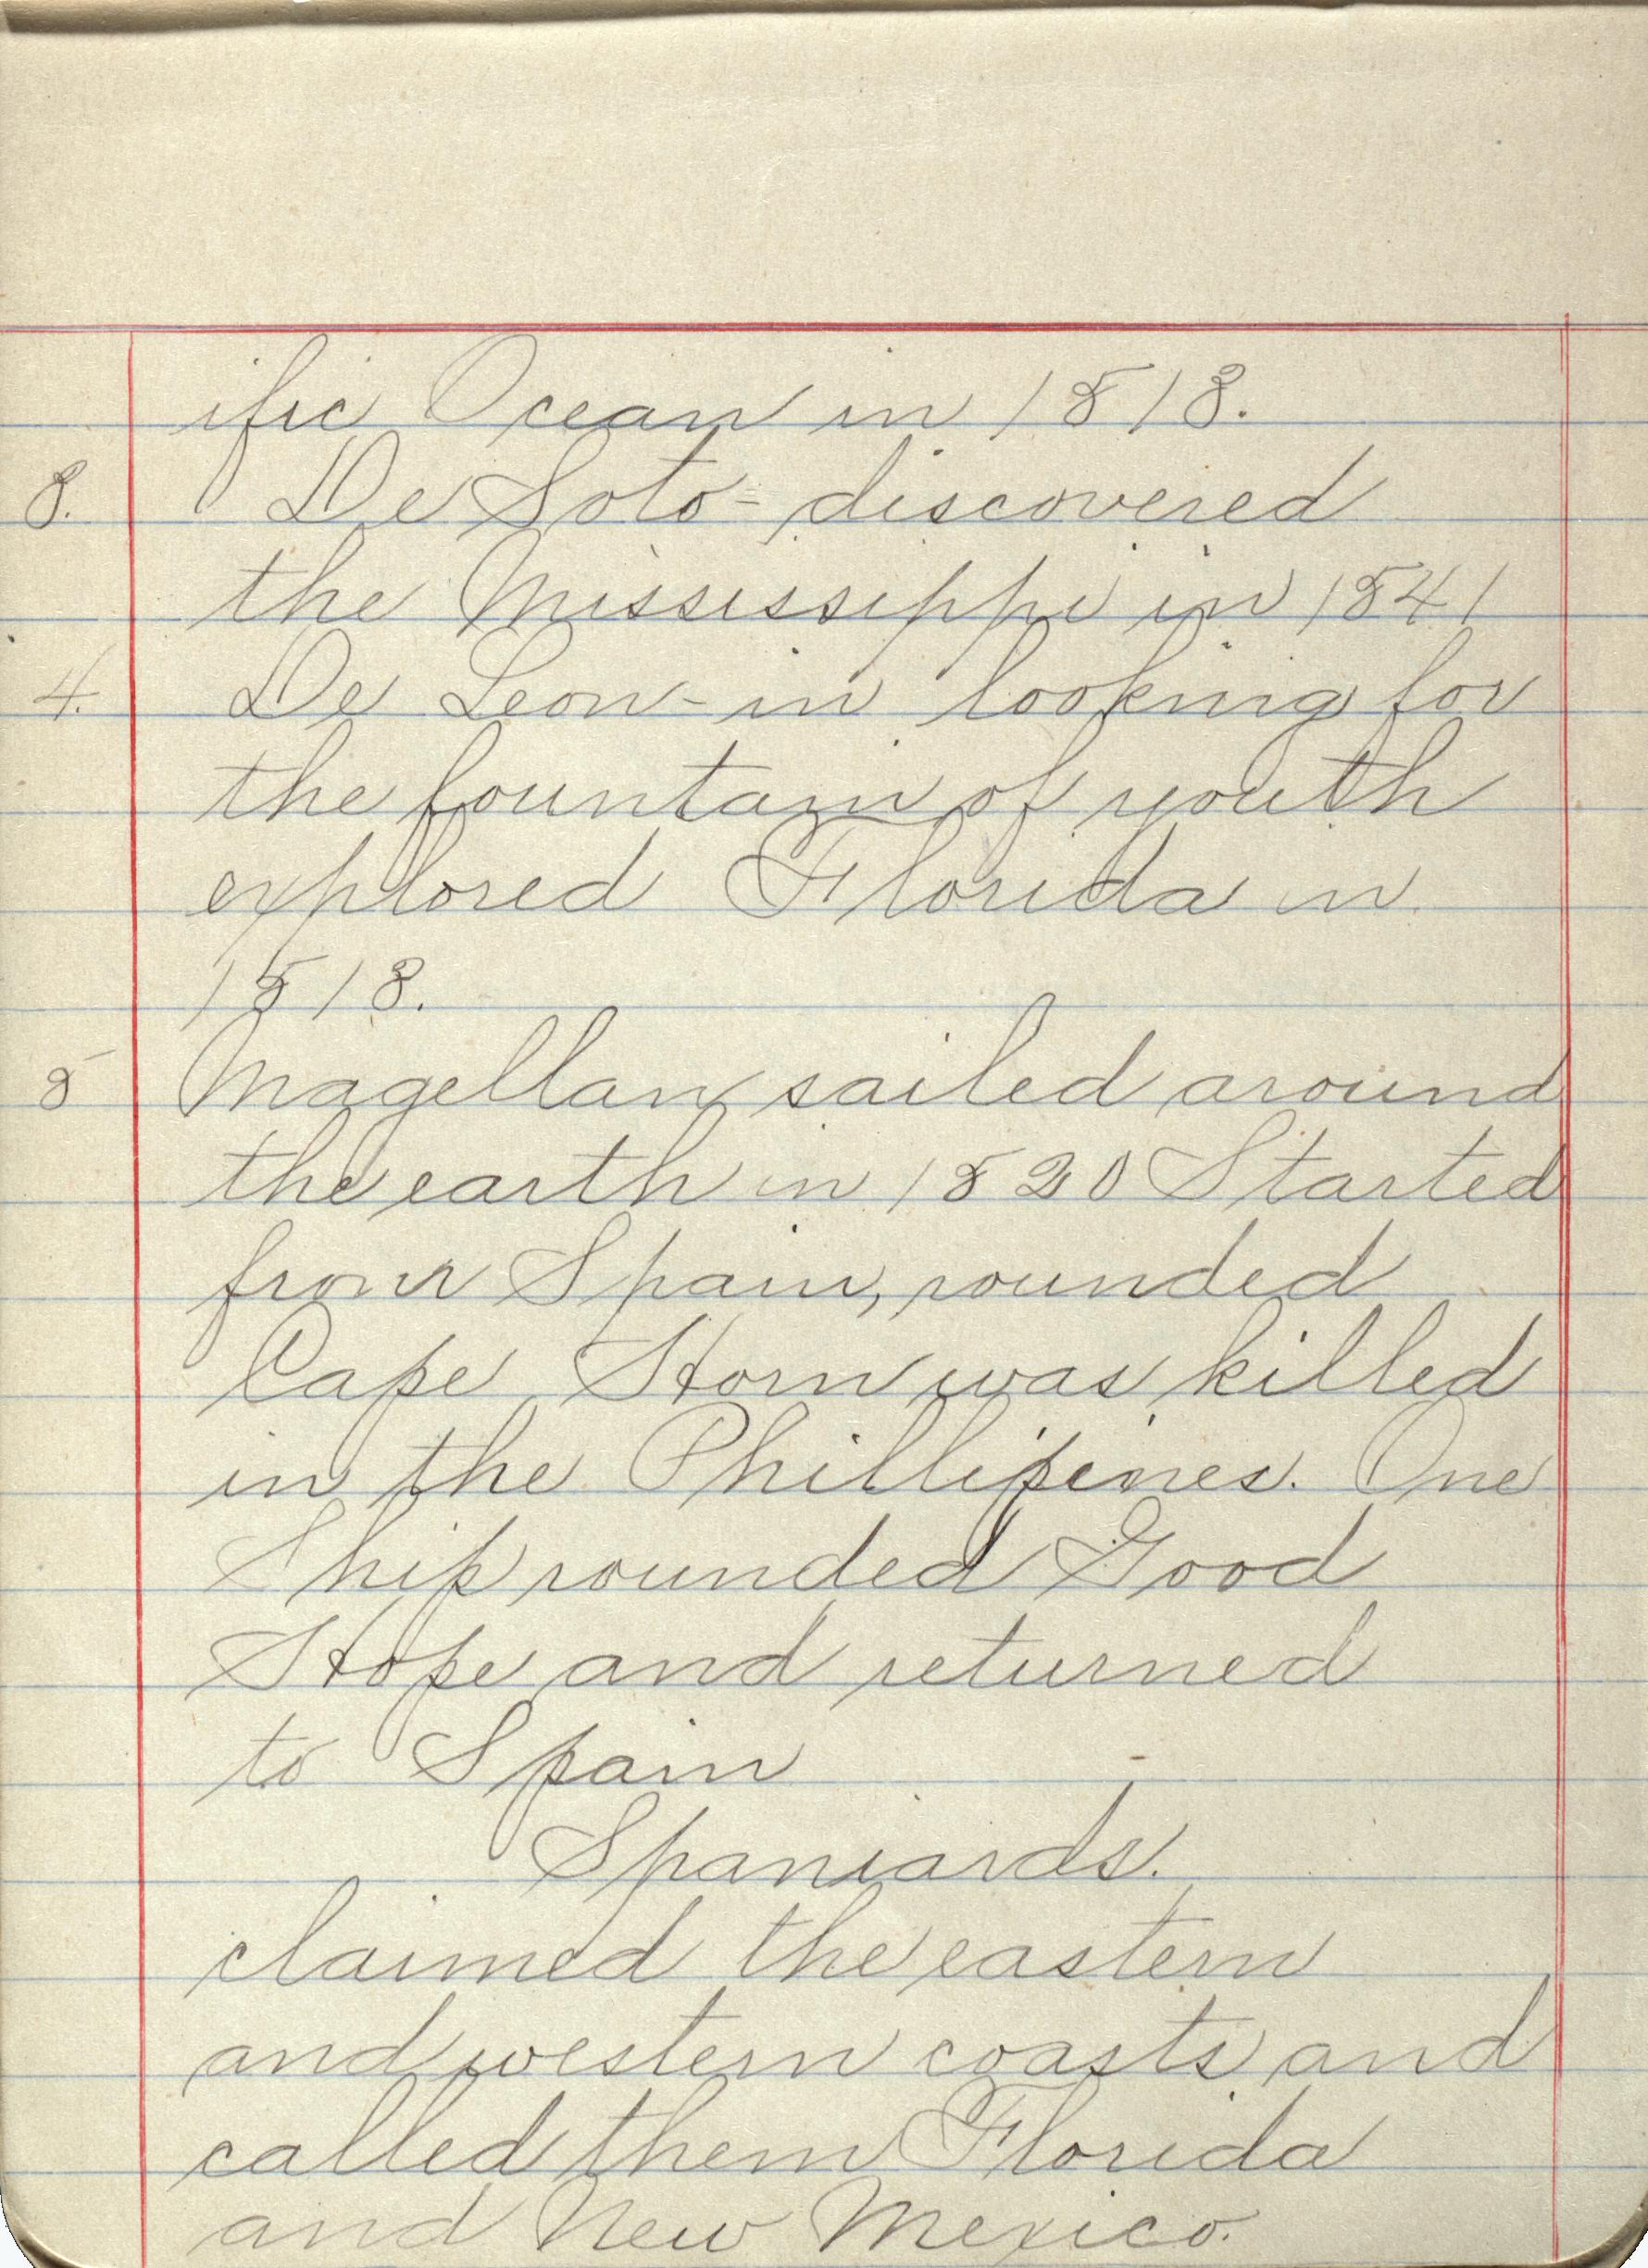 ific Ocean in 1513.
3. De Soto - discovered
the Mississippi in 1541
4. De Leon - in looking for
the fountain of youth
explored Florida in
1513.
5 Magellan sailed around
the earth in 1520 Started
from Spain, rounded
Cape Horn was killed
in the Phillipines. One
Ship rounded Good
Hope and returned
to Spain
Spaniards.
claimed the eastern
and western coasts and
called them Florida
and New Mexico.